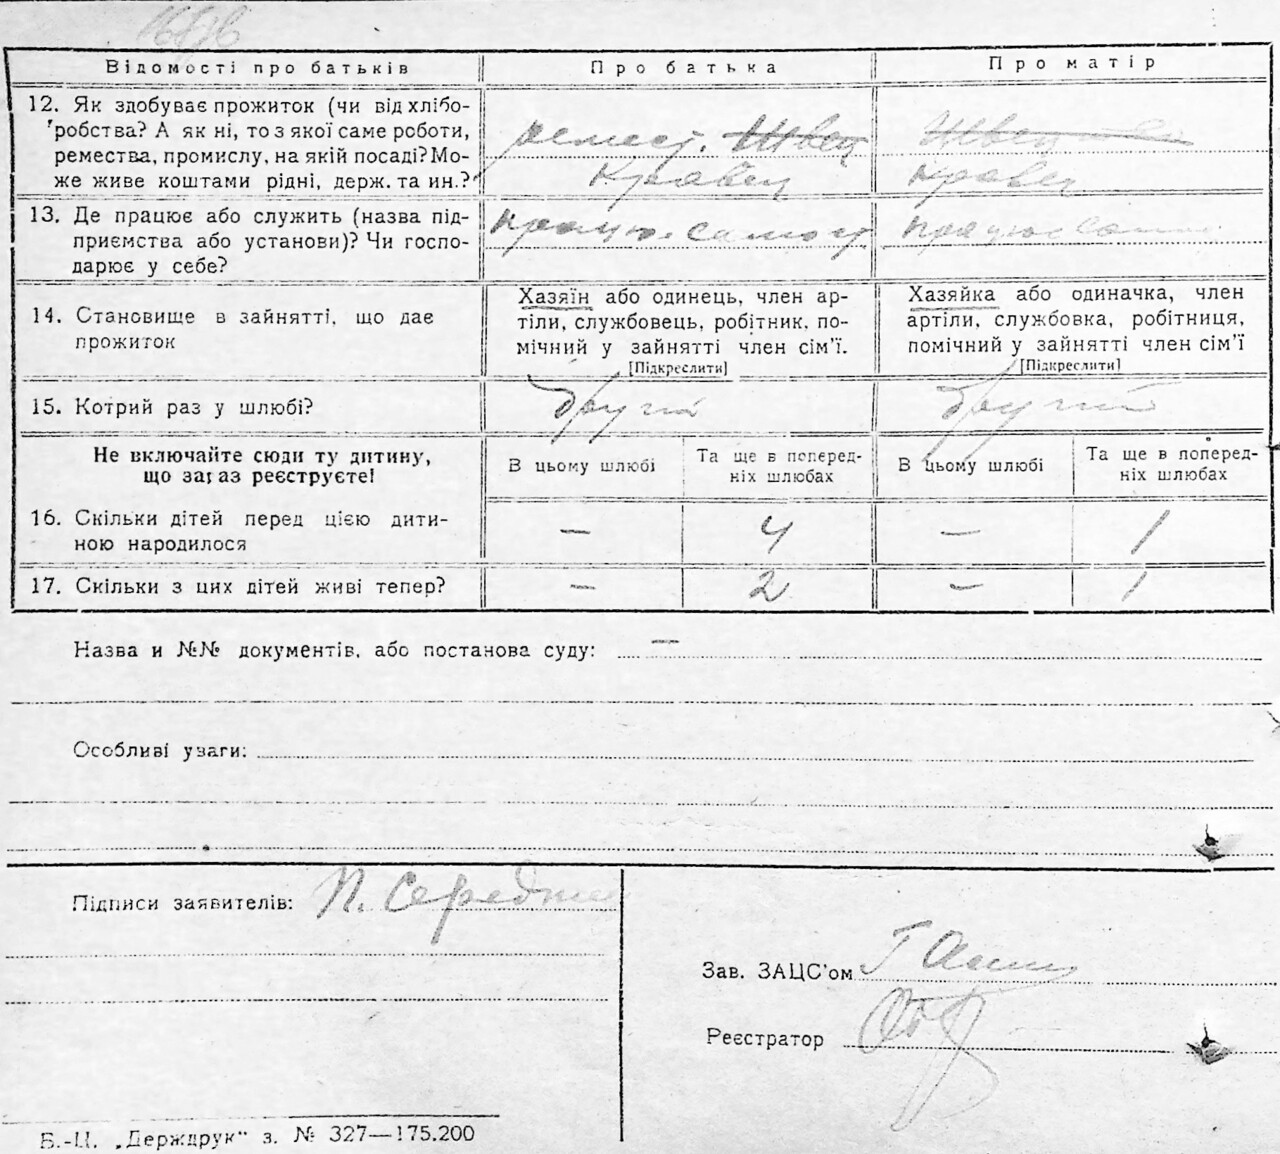 Відомості про батьків Про батька Про матір
12. Як здобуває прожиток (чи від хлібо-
робства? А як ні, то з якої саме роботи,
ремества, промислу, на якій посаді? Мо-
же живе коштами рідні, держ. та ин.?
ремест. Швец
Кравец
Швец
Кравец
13. Де працює або служить (назва під-
приємства або установи)? Чи госпо-
дарює у себе?
14. Становище в зайнятті, що дає
прожиток
Хазяїн або одинець, член ар-
тіли, службовець, робітник, по-
мічний у зайнятті член сім'ї.
[Підкреслити]
Хазяйка або одиначка, член
артіли, службовка, робітниця,
помічний у зайнятті член сім'ї
[Підкреслити]
15. Котрий раз у шлюбі? другий другий
Не включайте сюди ту дитину,
що зараз реєструєте!
В цьому шлюбі
Та ще в поперед-
ніх шлюбах
В цьому шлюбі
Та ще в поперед-
ніх шлюбах
16. Скільки дітей перед цією дити-
ною народилося
— 4 — 1
17. Скільки з цих дітей живі тепер? — 2 — 1
Назва и №№ документів, або постанова суду: —
Особливі уваги:
Підписи заявителів: П.
Зав. ЗАЦС'ом
Реєстратор
Б.-Ц. „Держдрук" з. № 327—175.200